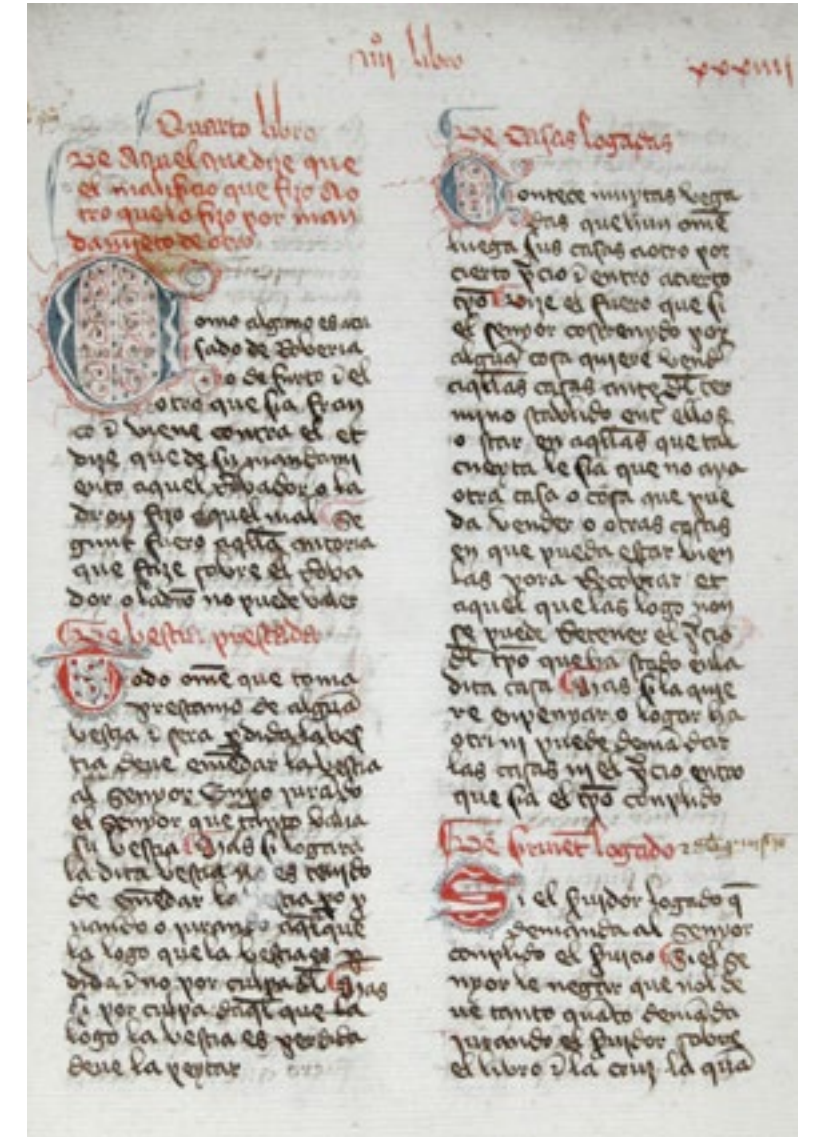 iiijº libro
xxxiiij
Quarto libro
De Aquel que dize que
el malificio que fizo a o
tro que lo fizo por man
damiẽto de otro
Como alguno es acu
sado de Roberia
o de furto ⁊ el
otro que sia fran
co ⁊ viene contra el et
dize que de su mandami
ento aquel Robador o la
dron fizo aquel mal Se
gunt fuero aq̃lla autoria
que fizo sobre el Roba
dor o ladrõ no puede valer
De bestia prestada
Todo om̃e que toma
prestamo de algũa
vestia ⁊ sera p̱dida la ves
tia deue em̃edar la vestia
al senyor Enpo jurãdo
el senyor que tanto valia
su bestia Mas si logara
la dita vestia no es tenido
de em̃edar la
uando o jurando aq̃l que
la logo que la bestia es p̱
dida ⁊ no por culpa dl̃ Mas
si por culpa daq̃l que la
logo la vestia es perdida
deue la peytar
De casas logadas
Contece muytas vega
das que hun om̃e
luega sus casas a otro por
cierto p̃cio ⁊ entro a cierto
tp̃o Dize el fuero que si
el senyor costrenydo por
algũa cosa quiere vend̃
aq̃llas casas ante dl̃ ter
mino stablido ent̃ ellos
o star en aq̃llas que tal
cueyta le sia que no aya
otra casa o cosa que pue
da vender o otras casas
en que pueda estar bien
las pora Recobrar et
aquel que las logo non
se puede Retener el p̃cio
dl̃ tp̃o que ha stado en la
dita casa Mas si la quie
re enpenyar o logar ha
otri ni puede demãdar
las casas ni el p̃cio entro
que sia el tp̃o conplido
De siruiẽt logado
Si el s̃uidor logado q̃
demanda al senyor
conplido el s̃uicio Si el se
nyor le negar que nol de
ue tanto quãto demãda
jurando el s̃uidor sobre
el libro ⁊ la cruz la quã